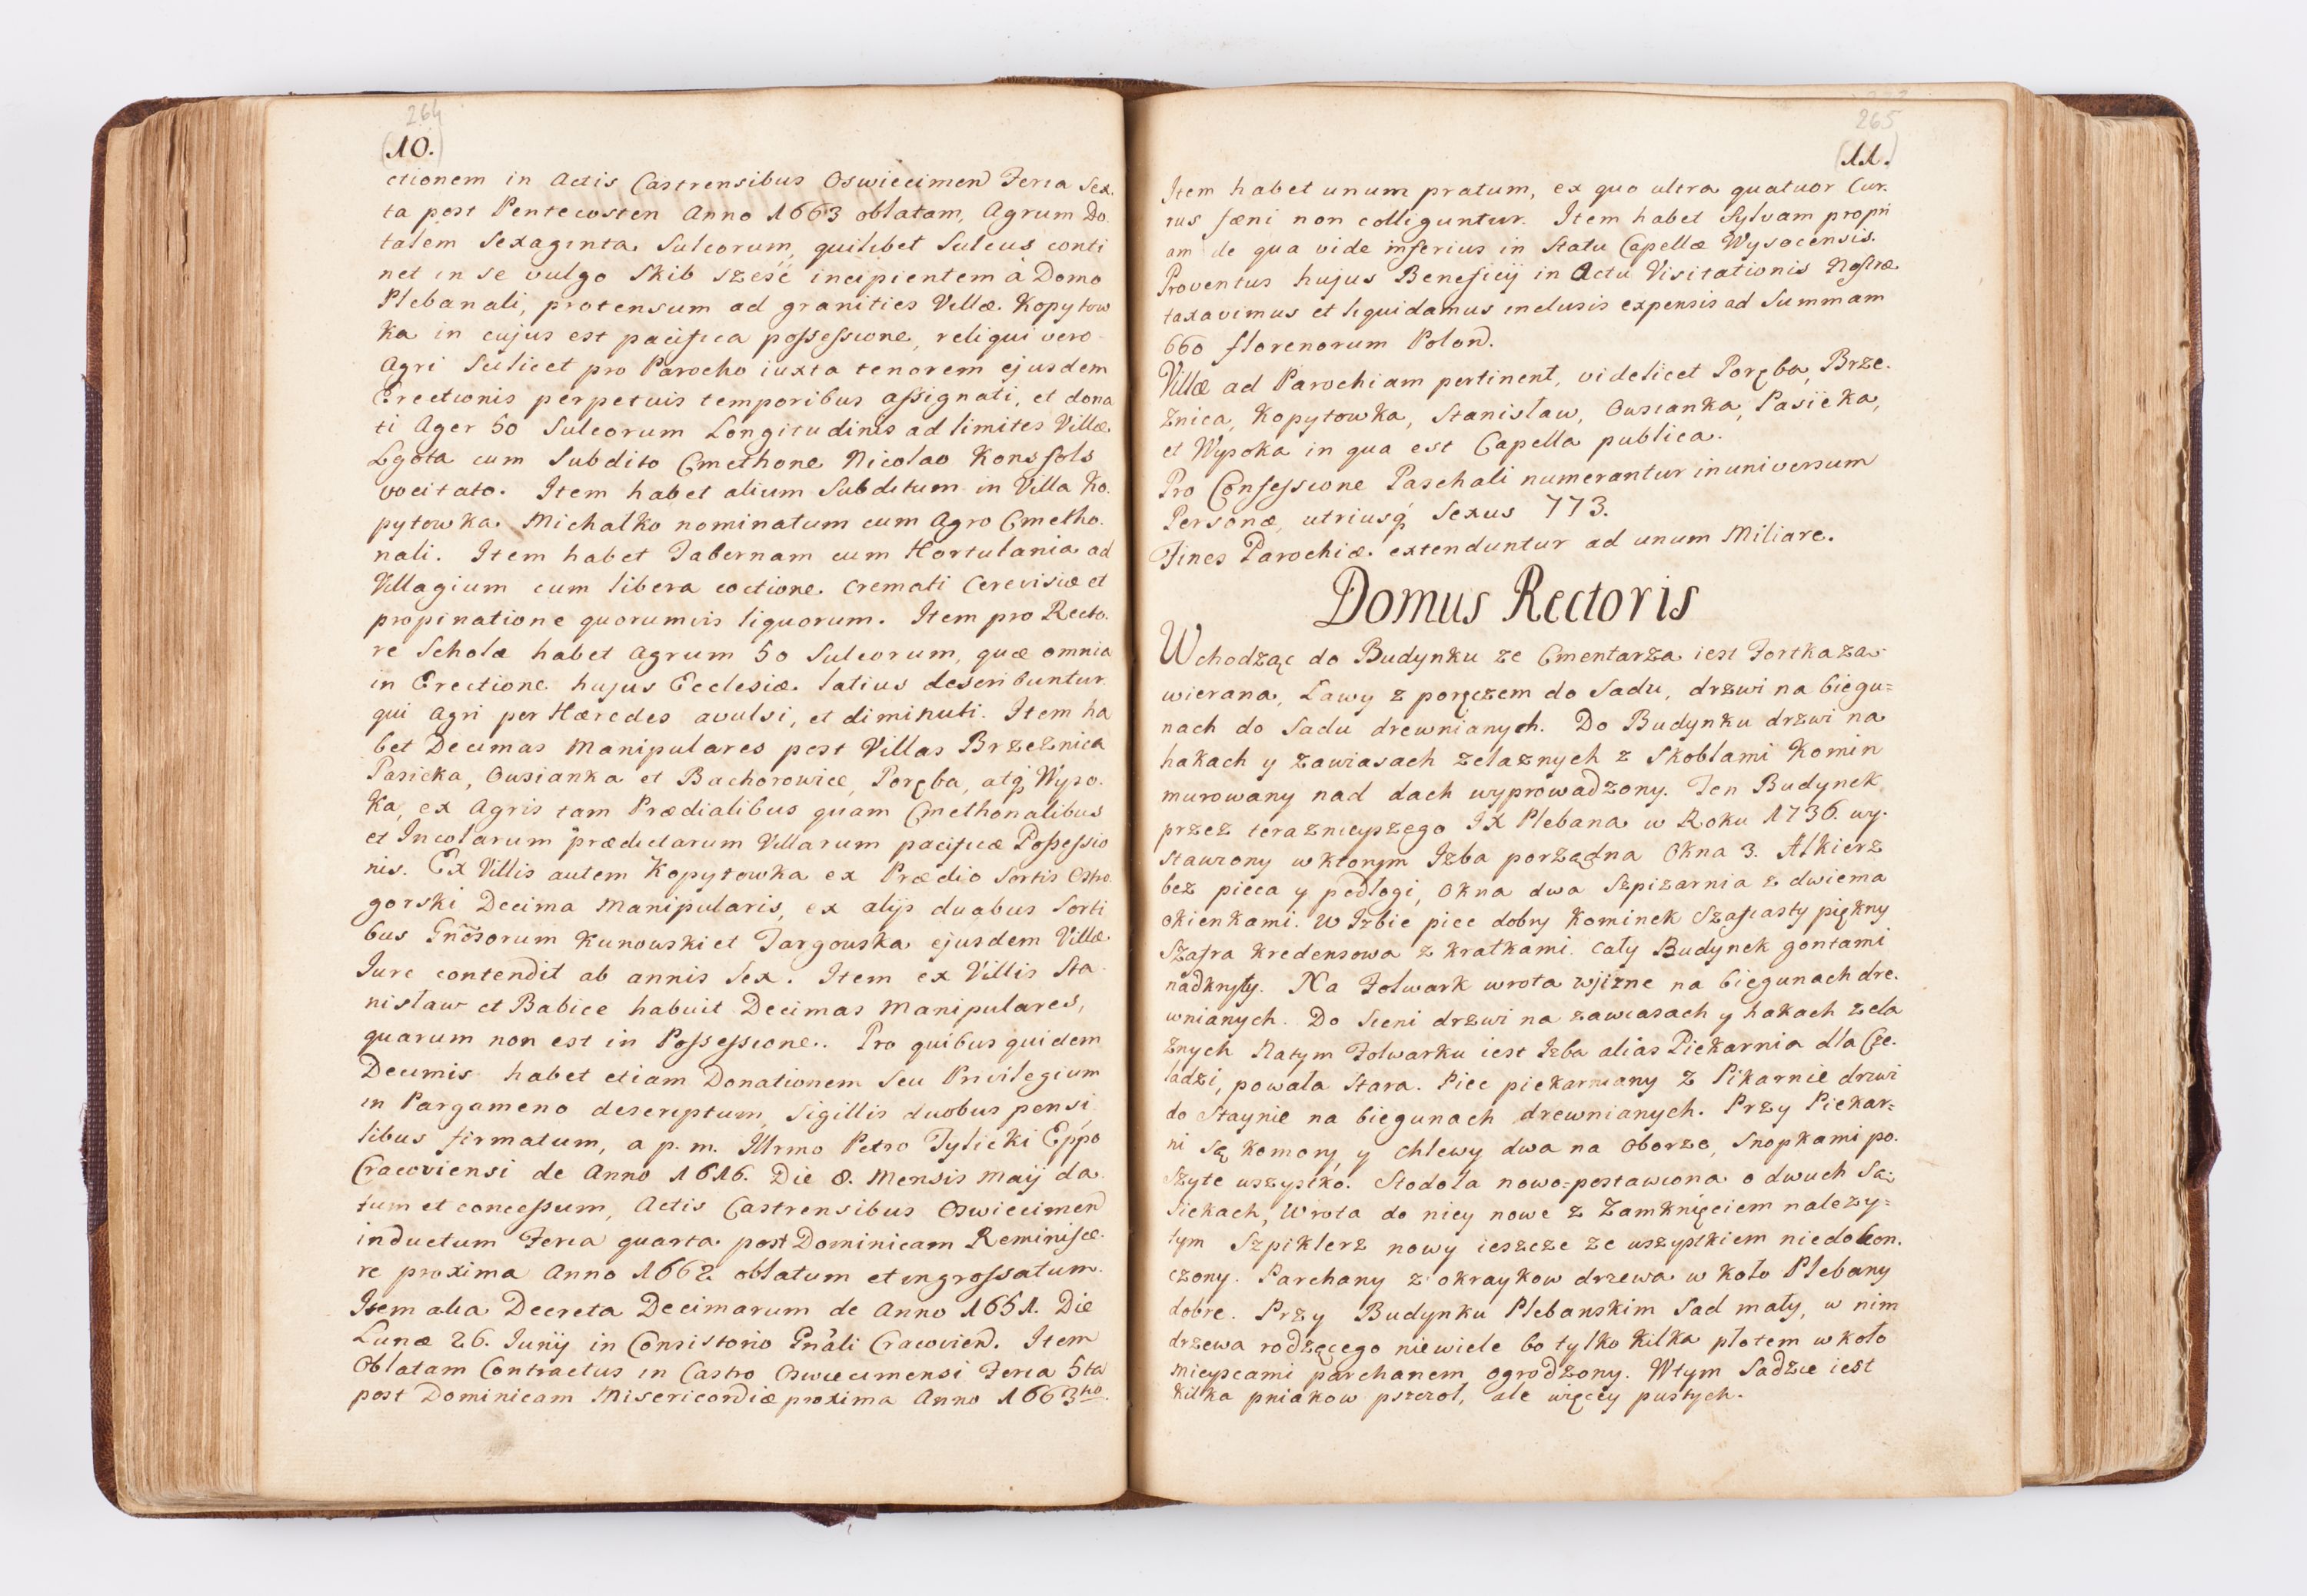 264
(10.)
ctionem in Actis Castrensibus Oswiecimen Feria Sex.
ta post Pentecosten Anno 1663 oblatam, Agrum Do
talem Sexaginta Sulcorum, quilibet Sulcus conti
net in se vulgo Skib sześć incipientem à Domo
Plebanali, protensum ad granities Villæ Kopytow
ka in cujus est pacifica possessione, reliqui vero
Agri Scilicet pro Parocho iuxta tenorem ejusdem
Erectionis perpetuis temporibus assignati, et dona
ti Ager 50 Sulcorum Longitudinis ad limites Villæ
Lgota cum Subdito Cmethone Nicolao Konssols
vocitato. Item habet alium Subditum in Villa Ko.
pytowka Michałko nominatum cum Agro Cmetho.
nali. Item habet Tabernam cum Hortulania ad
Villagium cum libera coctione cremati Cerevisiæ et
propinatione quorumvis liquorum. Item pro Recto.
re Scholæ habet Agrum 50 Sulcorum, quæ omnia
in Erectione hujus Ecclesiæ latius describuntur
qui Agri per Hæredes avulsi, et diminuti. Item ha
bet Decimas Manipulares post Villas Brzeznica
Pasieka, Owsianka et Bachorowice, Poręba, atq́ Wyso.
ka, ex Agris tam Prædialibus quam Cmethonalibus
et Incolarum prædictarum Villarum pacificæ Possessio
nis. Ex Villis autem Kopytowka ex Prædio Sortis Ostro
gorski Decima Manipularis, ex alijs duabus Sorti
bus Gnõsorum Kunowski et Targowska ejusdem Villæ
Iure contendit ab annis Sex. Item ex Villis Sta
nisław et Babice habuit Decimas Manipulares,
quarum non est in Possessione. Pro quibus quidem
Decimis habet etiam Donationem Seu Privilegium
in Pargameno descriptum, Sigillis duobus pensi
libus firmatum, a p. m. Illrmo Petro Tylicki Eppo
Cracoviensi de Anno 1616. Die 8. Mensis Maij da
tum et concessum, Actis Castrensibus Oswiecimen
inductum Feria quarta post Dominicam Reminisce.
re proxima Anno 1662 oblatum et ingrossatum.
Item alia Decreta Decimarum de Anno 1651. Die
Lunæ 26. Iunij in Consistorio Gnãli Cracovien. Item
Oblatam Contractus in Castro Oswiecimensi Feria 5ta
post Dominicam Misericordiæ proxima Anno 1663tio.
265
(11.)
Item habet unum pratum, ex quo ultra quatuor Cur.
rus fæni non colliguntur. Item habet Sylvam propri
am de qua vide inferius in Statu Capellæ Wysocensis.
Proventus hujus Beneficij in Actu Visitationis Nostræ
taxavimus et liquidamus inclusis expensis ad Summam
660 florenorum Polon.
Villæ ad Parochiam pertinent, videlicet Poręba, Brze.
znica, Kopytowka, Stanisław, Owsianka, Pasieka,
et Wysoka in qua est Capella publica.
Pro Confessione Paschali numerantur in universum
Personæ, utriusq́ Sexus 773.
Fines Parochiæ extenduntur ad unum Miliare.
Domus Rectoris
Wchodząc do Budynku ze Cmentarza iest Fortka za.
wierana, Ławy z poręczem do Sadu, drzwi na biegu=
nach do Sadu drewnianych. Do Budynku drzwi na
hakach y zawiasach zelaznych z Skoblami Komin
murowany nad dach wyprowadzony. Ten Budynek
przez teraznieyszego JX Plebana w Roku 1736. wy.
stawiony w ktorym Izba porządna Okna 3. Alkierz
bez pieca y podłogi, Okna dwa Szpizarnia z dwiema
okienkami. W Izbie piec dobry Kominek Szafiasty piękny
Szafra kredensowa z kratkami. Cały Budynek gontami
nadkryty. Na Folwark wrota wjizne na biegunach dre.
wnianych. Do Sieni drzwi na zawiasach y hakach zela
znych Natym Folwarku iest Izba alias Piekarnia dla Cze.
ladzi, powała Stara. Piec piekarniany Z Pikarnie drzwi
do Staynie na biegunach drewnianych. Przy Piekar=
ni Są Komory, y Chlewy dwa na Oborze, Snopkami po.
Szyte wszystko. Stodoła nowo=postawiona o dwuch Są=
Siekach, Wrota do niey nowe z Zamknięciem nalezy=
tym Szpiklerz nowy ieszcze ze wszystkiem niedokon.
czony. Parchany z okraykow drzewa w koło Plebany
dobre. Przy Budynku Plebanskim Sad mały, w nim
drzewa rodzącego niewiele bo tylko kilka płotem w koło
mieyscami parchanem ogrodzony. W tym Sadzie iest
kilka pniakow pszczoł, ale więcey pustych.